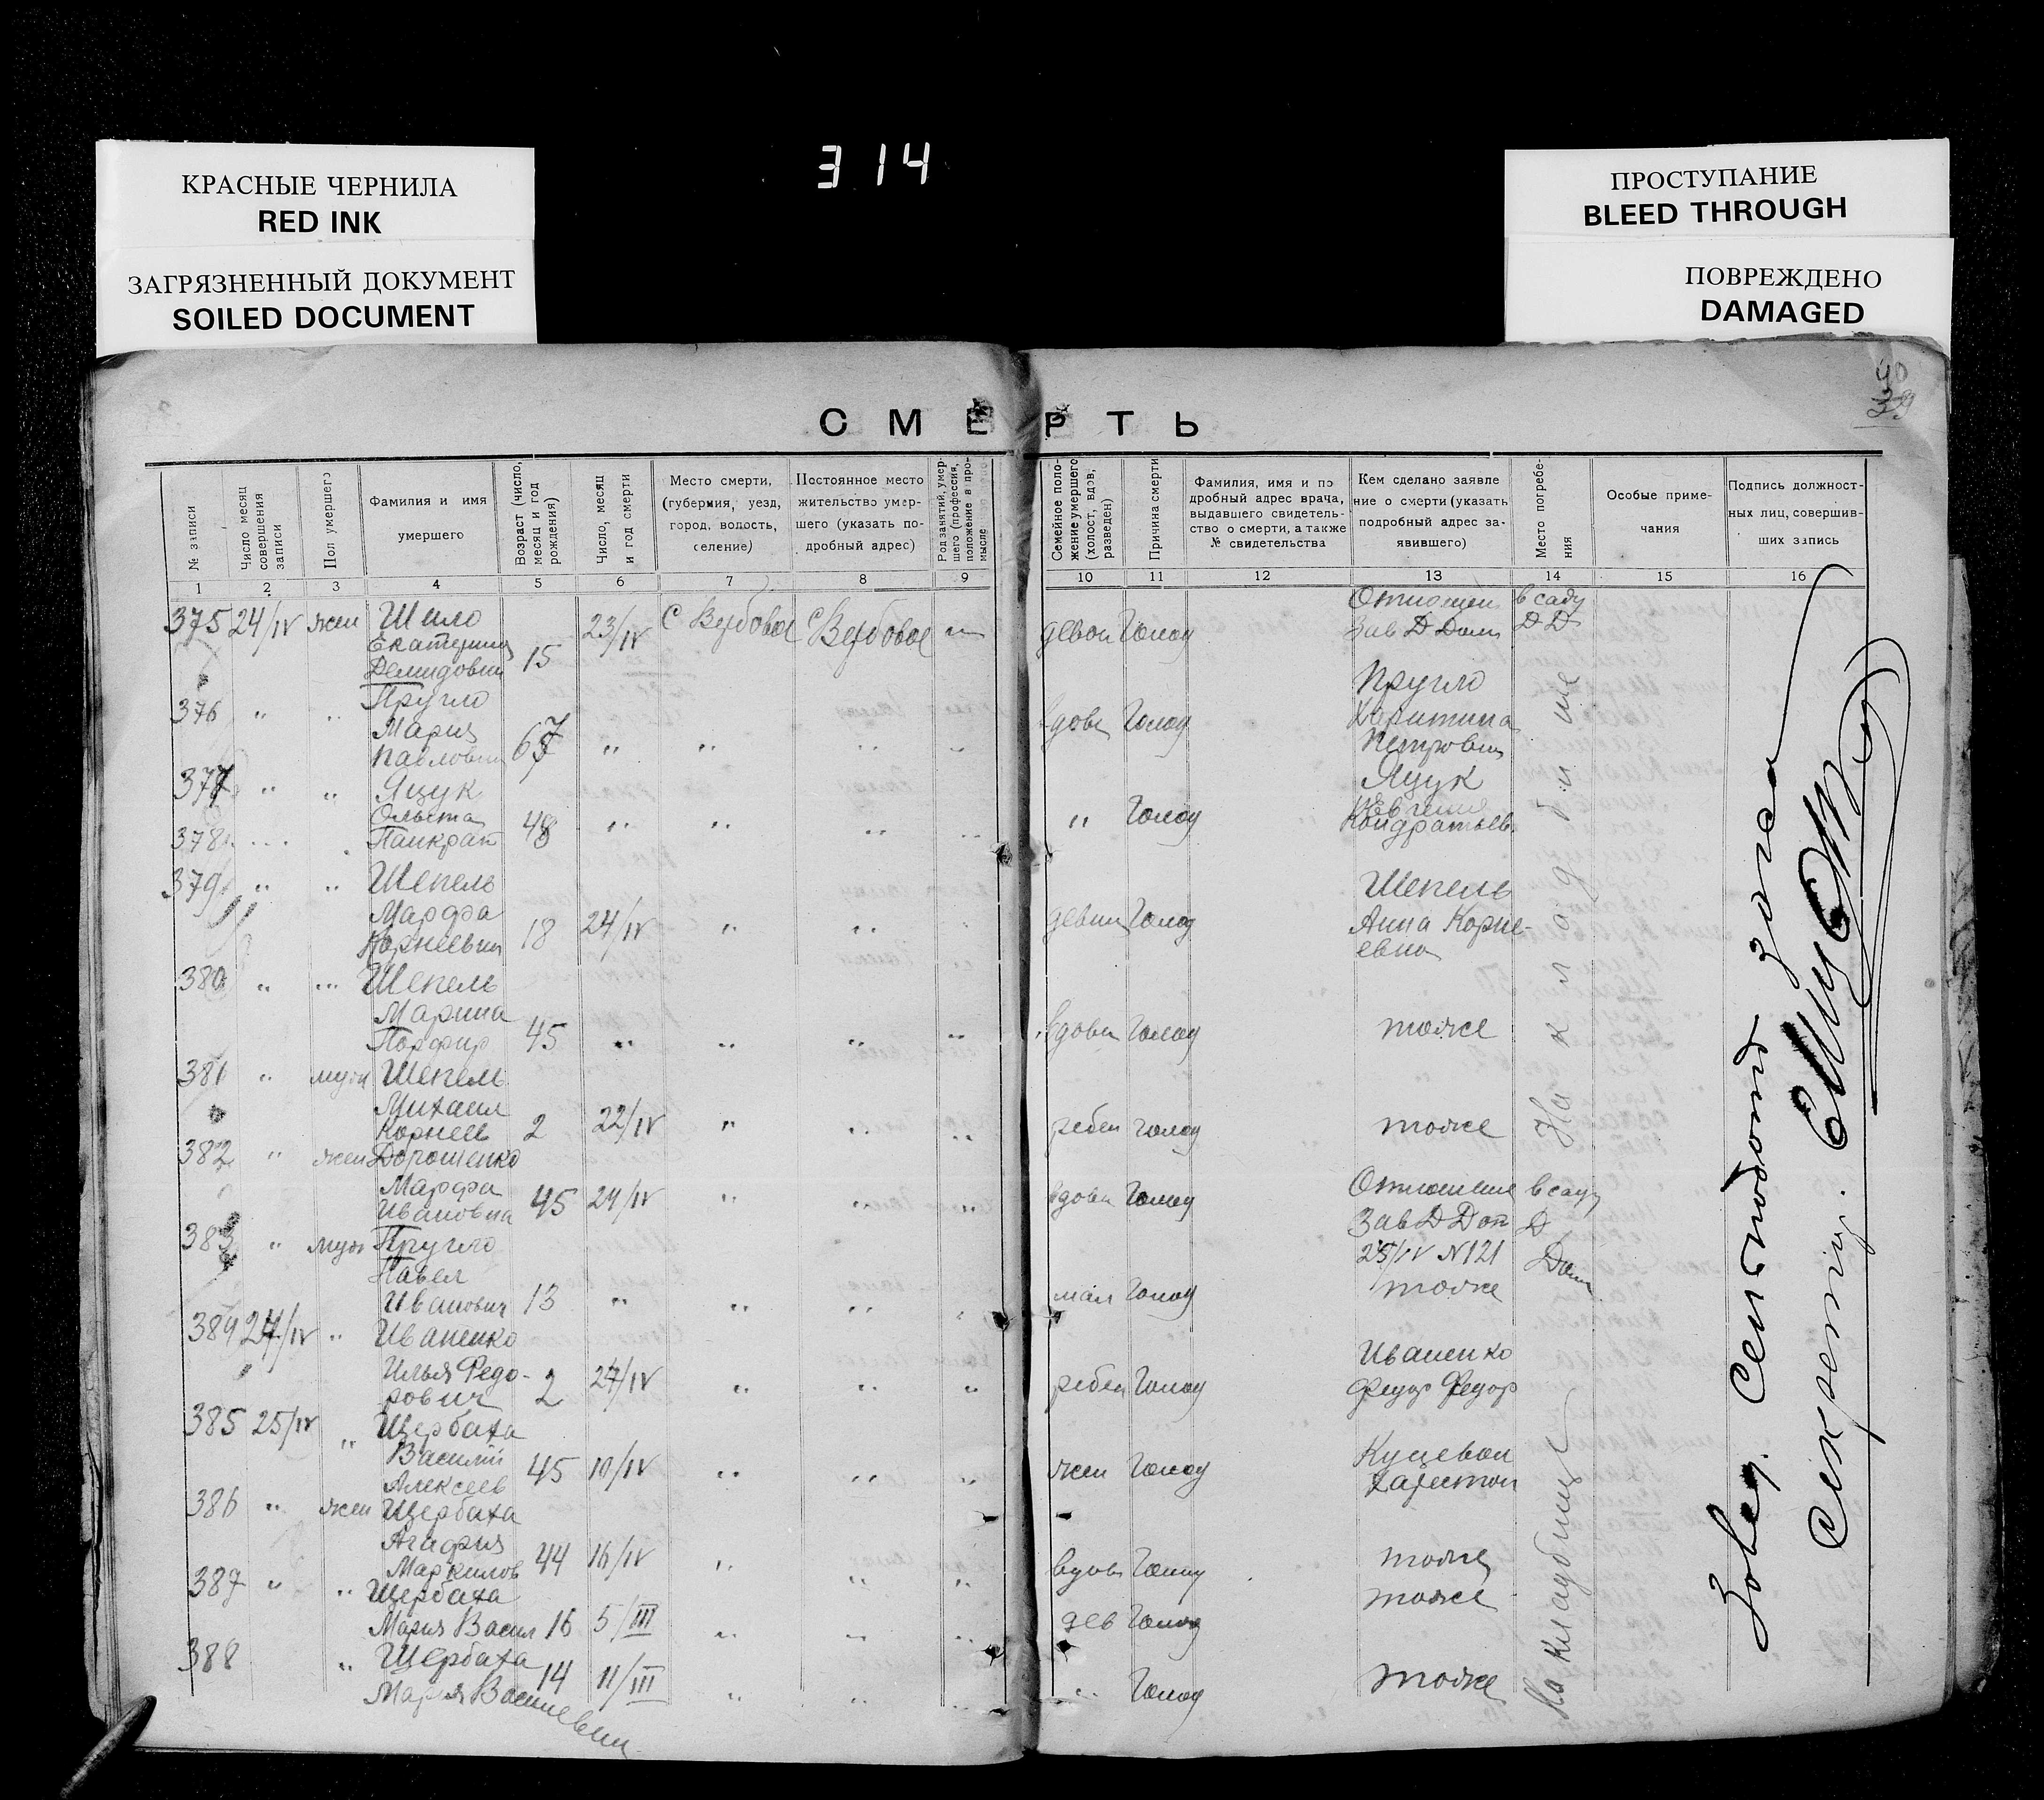 КРАСНЫЕ ЧЕРНИЛА
RED INK
ЗАГРЯЗНЕННЫЙ ДОКУМЕНТ
SOILED DOCUMENT
314
ПРОСТУПАНИЕ
BLEED THROUGH
ПОВРЕЖДЕНО
DAMAGED
40
39
СМЕРТЬ
№ записи
Число месяц совершения записи
Пол умершего
Фамилия и имя умершего
Возраст (число, месяц и год рождения)
Число, месяц и год смерти
Место смерти, (губермия, уезд, город, волость, селение)
Постоянное место жительство умершего (указать подробный адрес)
Род занятий, умершего (профессия, положение в промысле
Семейное положение умершего (холост, вдов, разведен)
Причина смерти
Фамилия, имя и подробный адрес врача, выдавшего свидетельство о смерти, а также № свидетельства
Кем сделано заявление о смерти (указать подробный адрес заявившего)
Место погребения
Особые примечания
Подпись должностных лиц, совершивших запись
1 2 3 4 5 6 7 8 9 10 11 12 13 14 15 16
375 24/IV жен Шило Екатерина Демидовна 15 23/IV С Вербовое С Вербовое Голод Зав Д Дом в саду Д Д
376 " " Пругло Мария Павловна 67 " " " " вдова Голод Пругло Харитина Петровна
377 " " Яцук 48 " " " " " Голод Яцук Кондратьев
378 Панкрат
379 " " Шепель Марфа Корнеевна 18 24/IV " " девиц Голод Шепель Анна Корнеевна
380 " " Шепель Марина Порфир 45 " " " " вдова Голод тоже
381 " муж Шепель Михаил Корнеев 2 22/IV " " " ребен Голод тоже
На кладбище
382 " жен Дорошенко Марфа Ивановна 45 24/IV " " " вдова Голод Отношение Зав Д Дом 25/IV N 121 в саду Д Дома
383 " муж Пругло Павел Иванович 13 " " " " мал Голод тоже
384 24/IV " Иваненко Илья Федорович 2 24/IV " " " ребен Голод Иваненко Федор Федор
385 25/IV " Щербаха Василий Алексеев 45 10/IV " " " жен Голод Куцевол Харитон
386 " жен Щербаха Агафия 44 16/IV " " " вдов Голод тоже
387 " " Щербаха Мария Васил 16 5/III " " " дев Голод тоже
388 " Щербаха Мария Васильевна 14 11/III " " " " Голод тоже
На кладбище
Секретарь